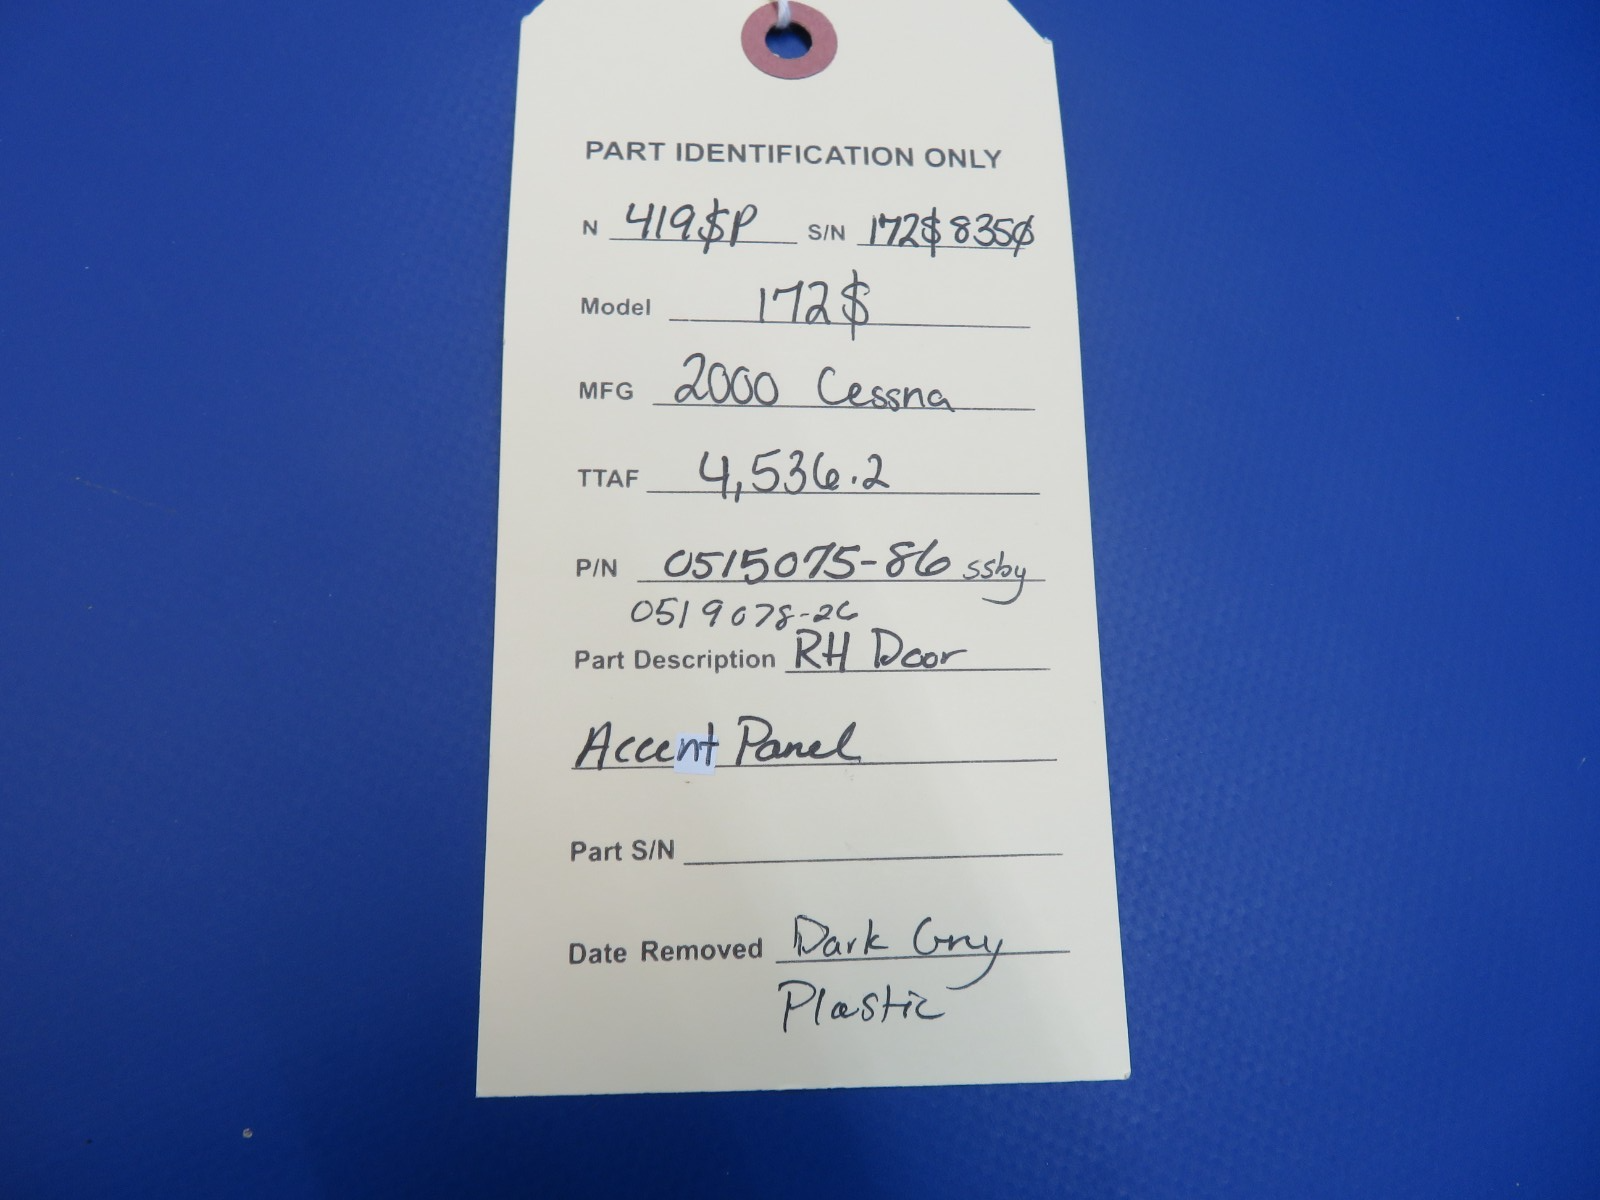 PART IDENTIFICATION ONLY
N 419$P S/N 172$835∅
Model 172$
MFG 2000 Cessna
TTAF 4,536.2
P/N 0515075-86 ssby
0519078-26
Part Description RH Door
Accent Panel
Part S/N
Date Removed Dark Gray
Plastic